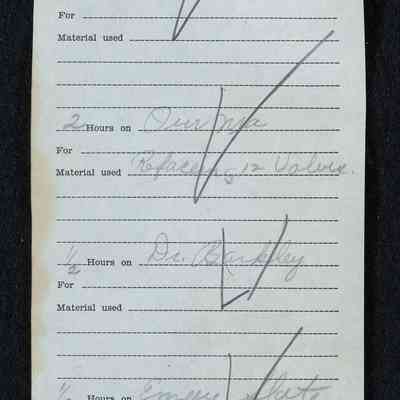 For
Material used
2 Hours on Our
For
Material used Refacing 12 Valves.
1/2 Hours on Dr. Barkley
For
Material used
1/2 Hours on Emery